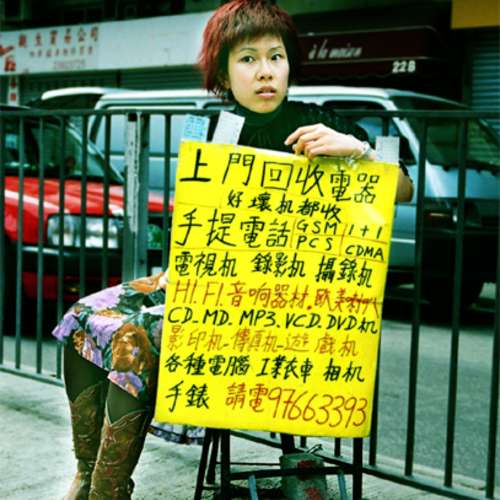 貿易公司
à la maison
22B
上門回收電器
好壞机都收
手提電話 GSM PCS 1+1 CDMA
電視机 錄影机 攝錄机
HI.FI.音响器材.歐美
CD.MD.MP3.VCD.DVD机
影印机-傳真机-遊戲机
各種電腦 工業衣車 相机
手錶 請電97663393